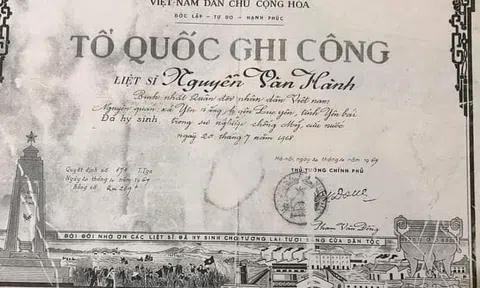 VIỆT-NAM DÂN CHỦ CỘNG HÒA
ĐỘC LẬP - TỰ DO - HẠNH PHÚC
TỔ QUỐC GHI CÔNG
LIỆT SĨ Nguyễn Văn Hành
Binh nhất Quân đội nhân dân Việt nam
Nguyên quán xã Yên huyện Lục yên, tỉnh Yên bái
Đã hy sinh trong sự nghiệp chống Mỹ, cứu nước
ngày 20 tháng 7 năm 1968
Quyết định số TTg
Ngày tháng năm 1969
Bằng số
Hà-nội, ngày tháng năm 1969
THỦ TƯỚNG CHÍNH PHỦ
Phạm Văn Đồng
ĐỜI ĐỜI NHỚ ƠN CÁC LIỆT SĨ ĐÃ HY SINH CHO TƯƠNG LAI TƯƠI SÁNG CỦA DÂN TỘC